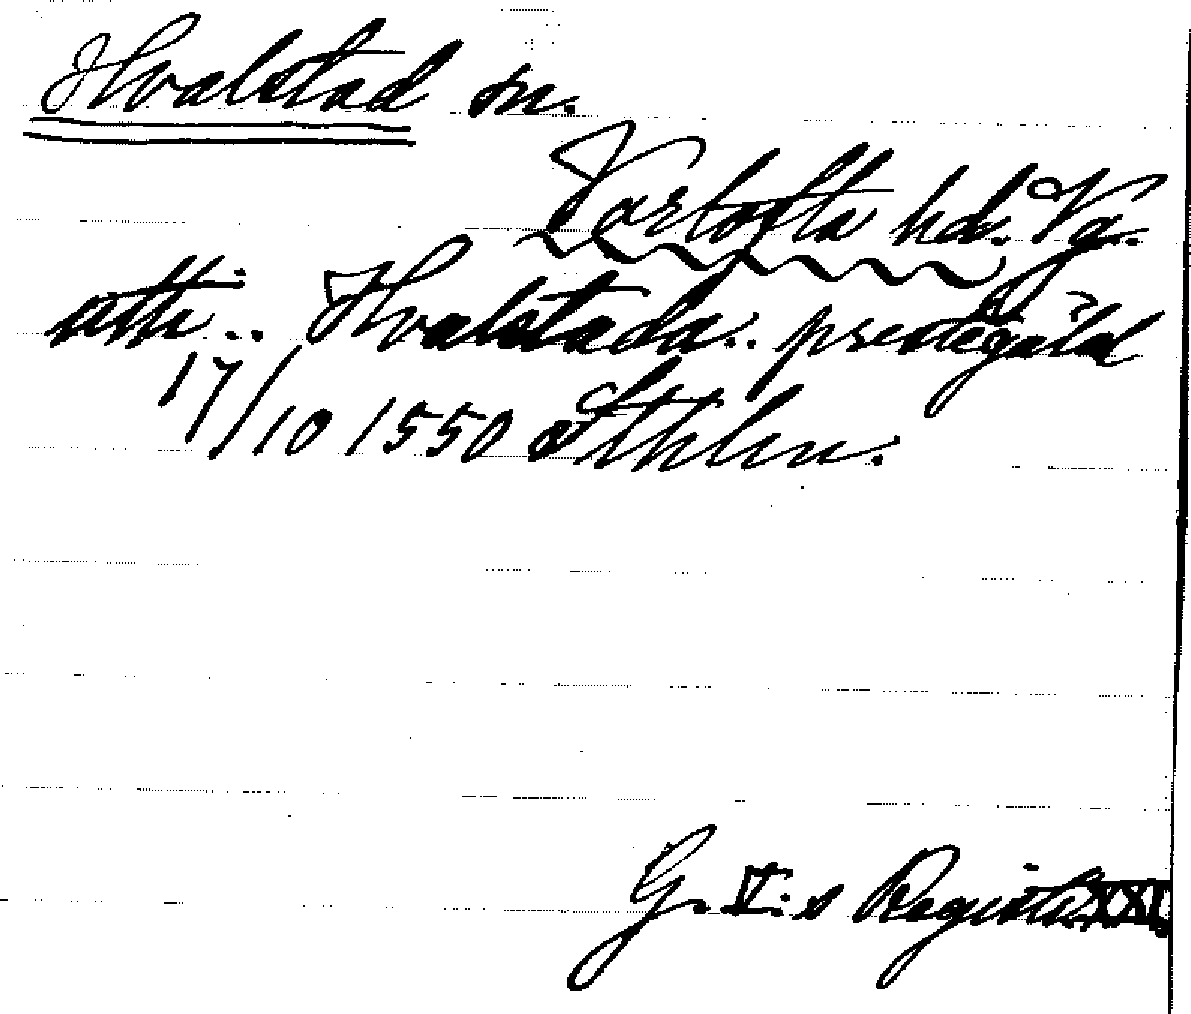 Hvalstad sn.
Vartofta hd. Vg.
utti .. Hvalstada .. prestegäld
17/10 1550 Sthlm.
G. I:s Registr. XXI.